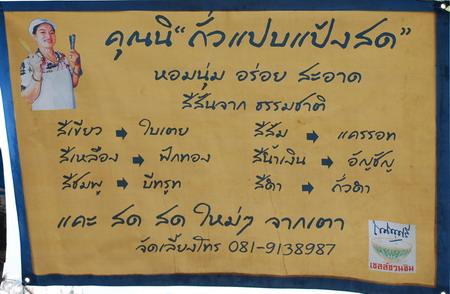 คุณนิ "ถั่วแปบแป้งสด"
หอมนุ่ม อร่อย สะอาด
สีสันจาก ธรรมชาติ
สีเขียว ➡ ใบเตย
สีส้ม ➡ แครรอท
สีเหลือง ➡ ฟักทอง
สีน้ำเงิน ➡ อัญชัญ
สีชมพู ➡ บีทรูท
สีดำ ➡ ถั่วดำ
แคะ สด สด ใหม่ๆ จากเตา
จัดเลี้ยงโทร 081-9138987
เชลล์ชวนชิม